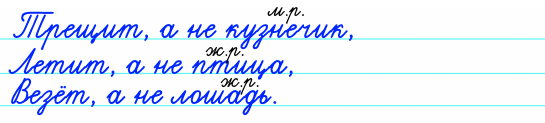 м.р.
Трещит, а не кузнечик,
ж.р.
Летит, а не птица,
ж.р.
Везёт, а не лошадь.